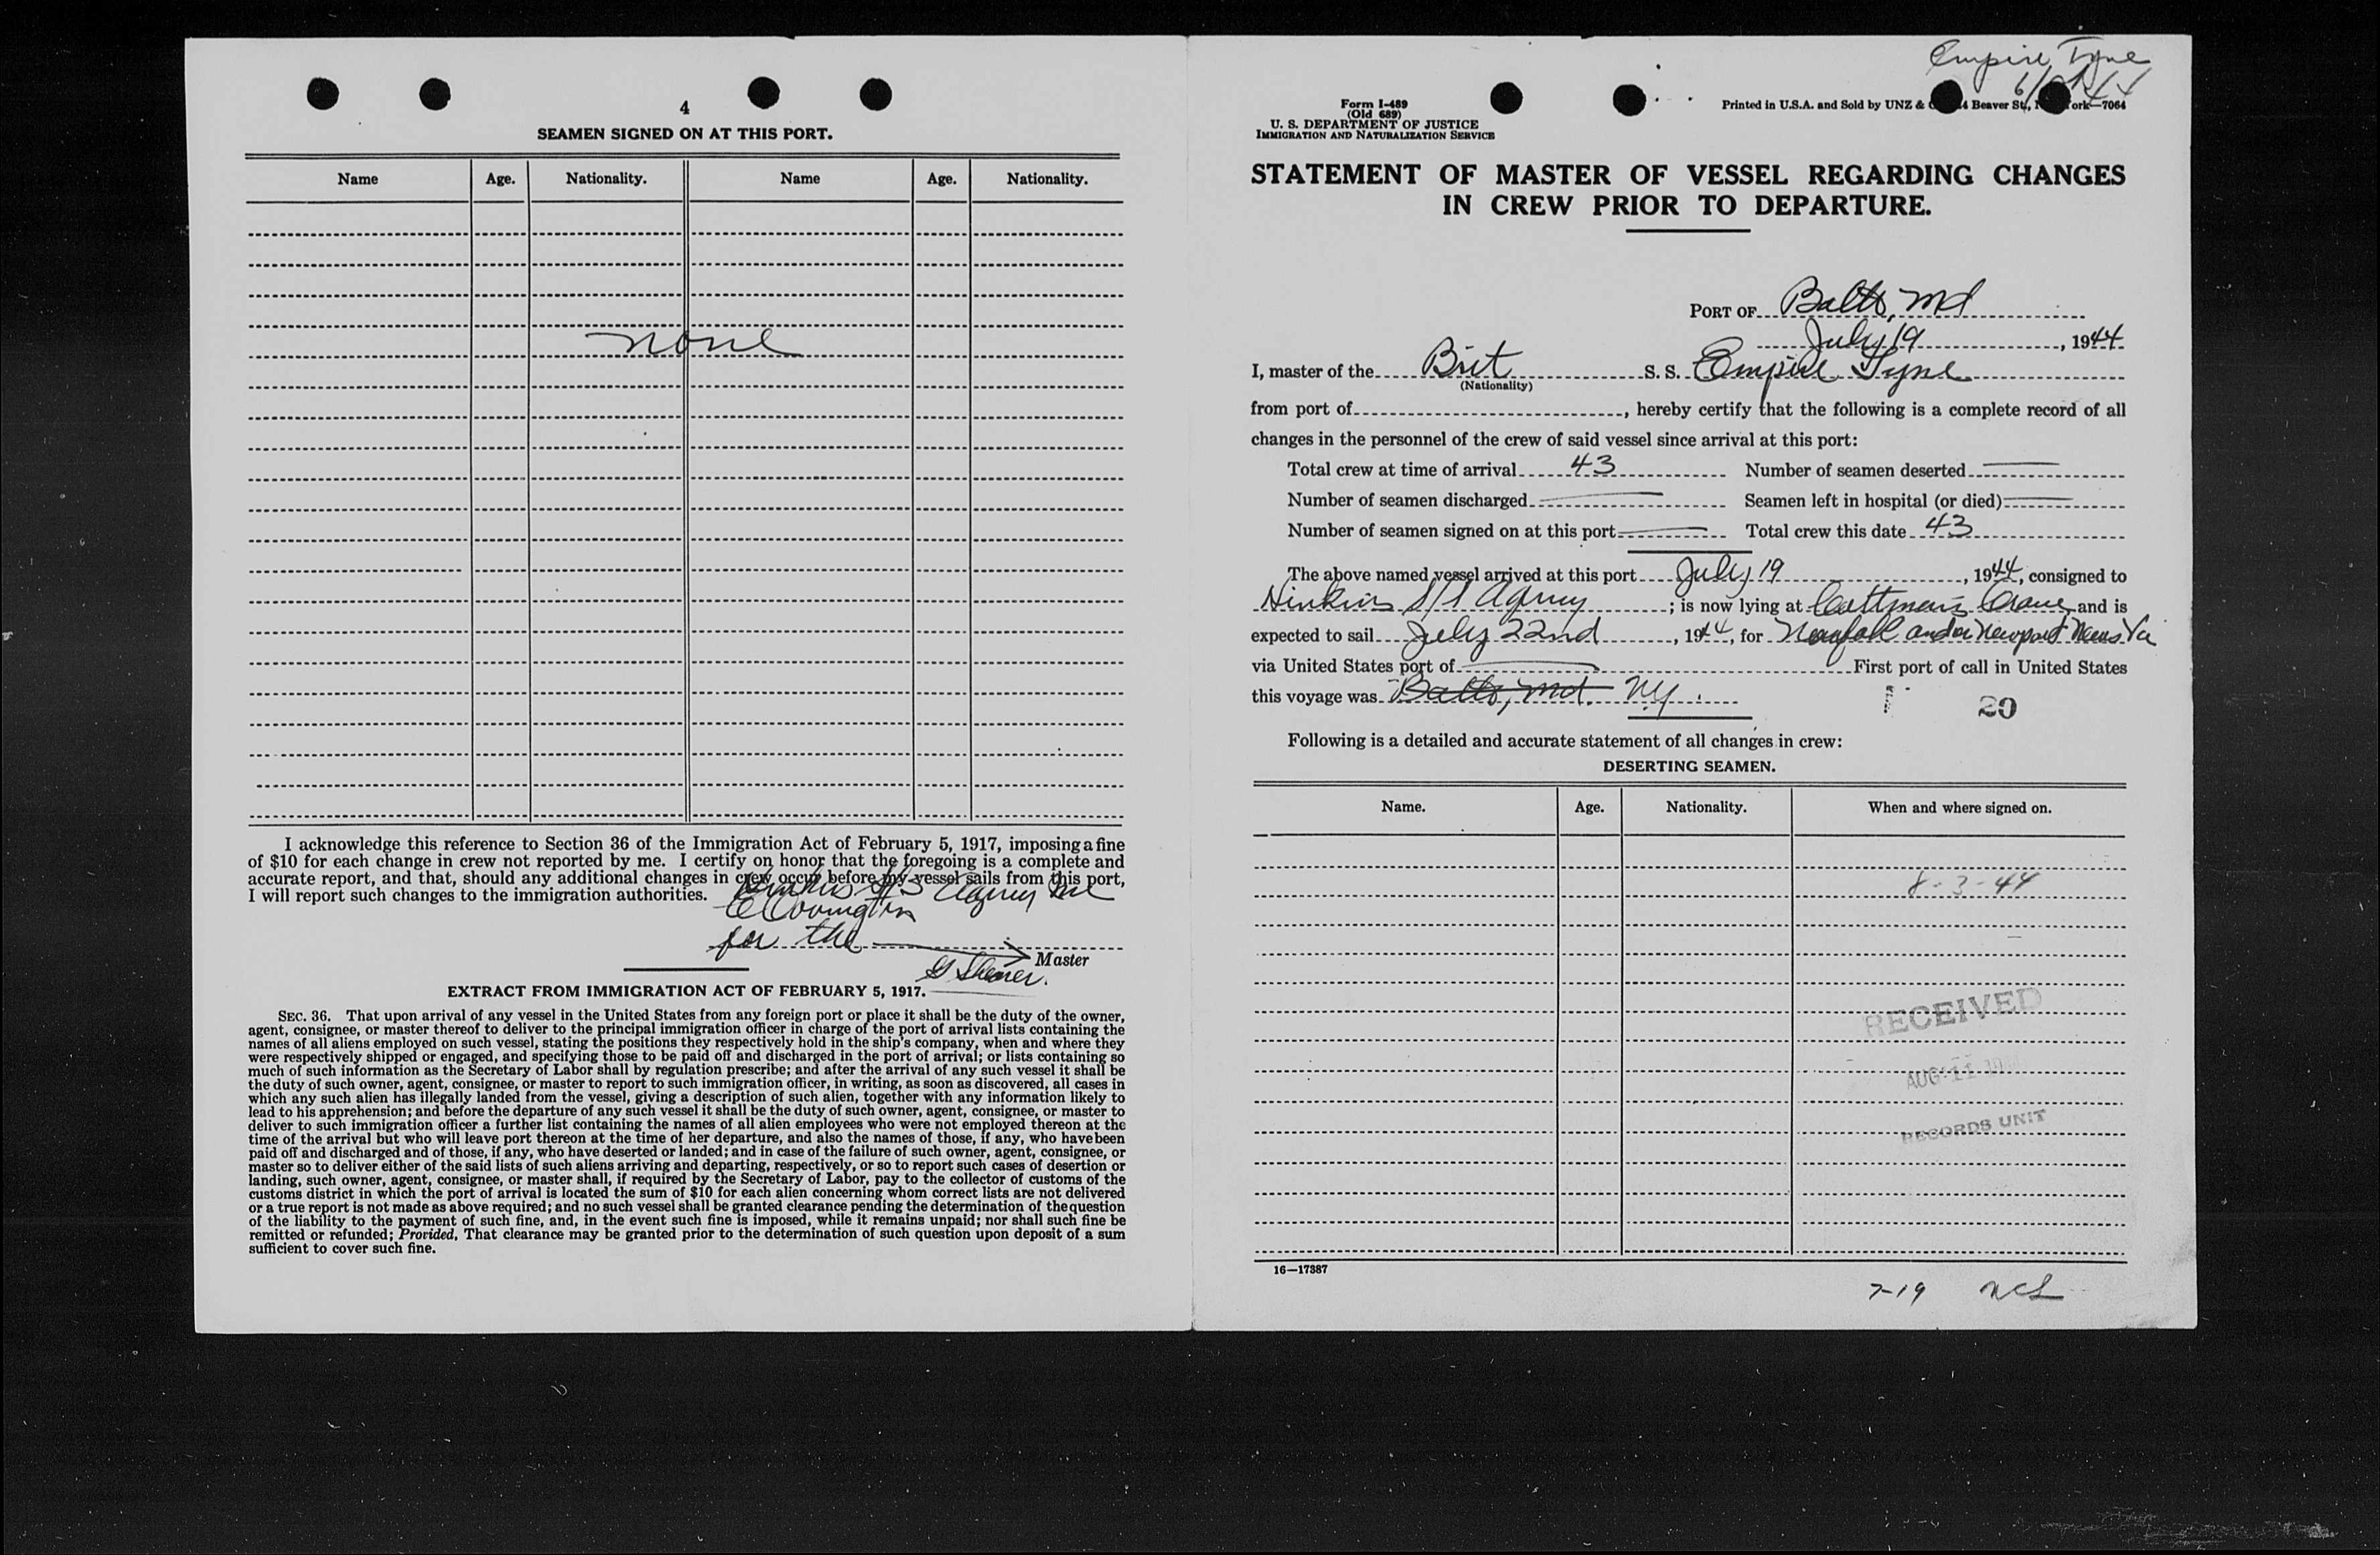 4
SEAMEN SIGNED ON AT THIS PORT.
Name Age. Nationality. Name Age. Nationality.
none
I acknowledge this reference to Section 36 of the Immigration Act of February 5, 1917, imposing a fine
of $10 for each change in crew not reported by me. I certify on honor that the foregoing is a complete and
accurate report, and that, should any additional changes in crew occur before my vessel sails from this port,
I will report such changes to the immigration authorities.
S/S Agency Inc
E Covington
for the
Master
EXTRACT FROM IMMIGRATION ACT OF FEBRUARY 5, 1917.
SEC. 36. That upon arrival of any vessel in the United States from any foreign port or place it shall be the duty of the owner,
agent, consignee, or master thereof to deliver to the principal immigration officer in charge of the port of arrival lists containing the
names of all aliens employed on such vessel, stating the positions they respectively hold in the ship's company, when and where they
were respectively shipped or engaged, and specifying those to be paid off and discharged in the port of arrival; or lists containing so
much of such information as the Secretary of Labor shall by regulation prescribe; and after the arrival of any such vessel it shall be
the duty of such owner, agent, consignee, or master to report to such immigration officer, in writing, as soon as discovered, all cases in
which any such alien has illegally landed from the vessel, giving a description of such alien, together with any information likely to
lead to his apprehension; and before the departure of any such vessel it shall be the duty of such owner, agent, consignee, or master to
deliver to such immigration officer a further list containing the names of all alien employees who were not employed thereon at the
time of the arrival but who will leave port thereon at the time of her departure, and also the names of those, if any, who have been
paid off and discharged and of those, if any, who have deserted or landed; and in case of the failure of such owner, agent, consignee, or
master so to deliver either of the said lists of such aliens arriving and departing, respectively, or so to report such cases of desertion or
landing, such owner, agent, consignee, or master shall, if required by the Secretary of Labor, pay to the collector of customs of the
customs district in which the port of arrival is located the sum of $10 for each alien concerning whom correct lists are not delivered
or a true report is not made as above required; and no such vessel shall be granted clearance pending the determination of the question
of the liability to the payment of such fine, and, in the event such fine is imposed, while it remains unpaid; nor shall such fine be
remitted or refunded; Provided, That clearance may be granted prior to the determination of such question upon deposit of a sum
sufficient to cover such fine.
Empire Tyne
Form I-489
(Old 689)
U. S. DEPARTMENT OF JUSTICE
IMMIGRATION AND NATURALIZATION SERVICE
Printed in U.S.A. and Sold by UNZ & Beaver St., 7064
STATEMENT OF MASTER OF VESSEL REGARDING CHANGES
IN CREW PRIOR TO DEPARTURE.
PORT OF Balto, Md
July 19, 1944
I, master of the Brit S. S. Empire Tyne
(Nationality)
from port of , hereby certify that the following is a complete record of all
changes in the personnel of the crew of said vessel since arrival at this port:
Total crew at time of arrival 43 Number of seamen deserted
Number of seamen discharged Seamen left in hospital (or died)
Number of seamen signed on at this port Total crew this date 43
The above named vessel arrived at this port July 19, 1944, consigned to
S/S Agency ; is now lying at and is
expected to sail July 22nd, 1944, for and or Newport News Va
via United States port of First port of call in United States
this voyage was Balto, Md. NY.
20
Following is a detailed and accurate statement of all changes in crew:
DESERTING SEAMEN.
Name. Age. Nationality. When and where signed on.
8-3-44
RECEIVED
AUG 11
RECORDS UNIT
16—17387
7-19